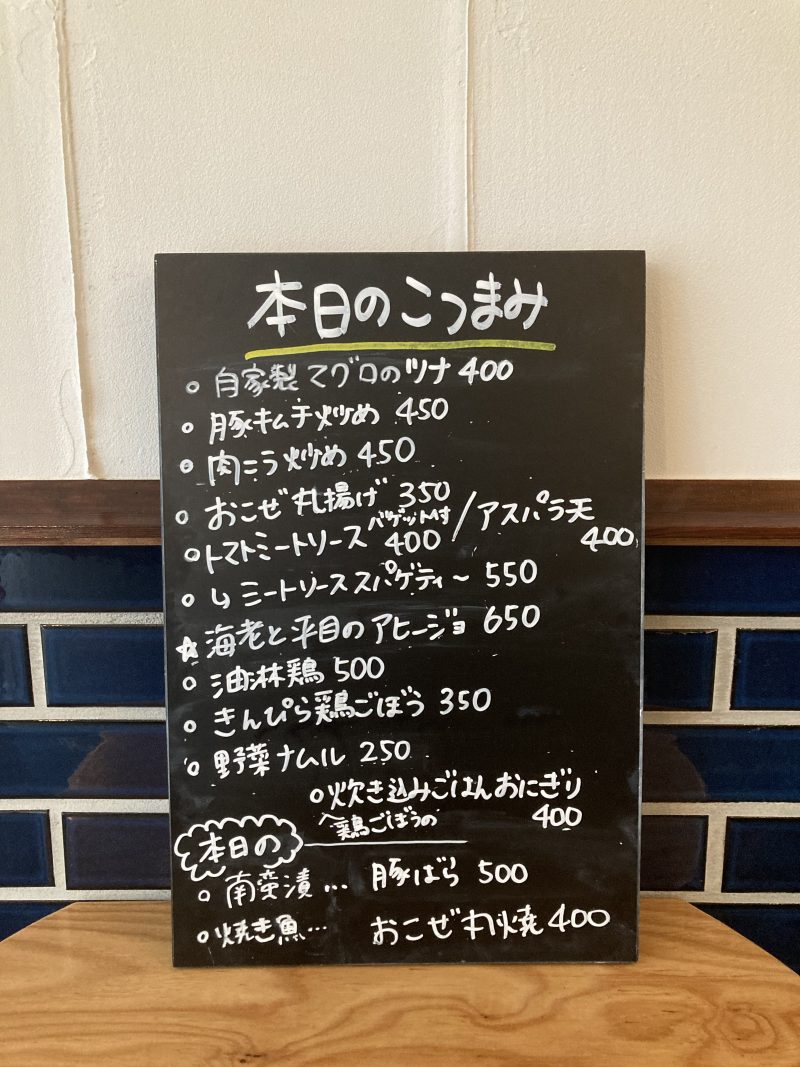 本日のこつまみ
○ 自家製マグロのツナ 400
○ 豚キムチ炒め 450
○ 肉ニラ炒め 450
○ おこぜ丸揚げ 350
○ トマトミートソース バゲット付 400 / アスパラ天 400
○ ↳ ミートソーススパゲティ〜 550
☆ 海老と平目のアヒージョ 650
○ 油淋鶏 500
○ きんぴら鶏ごぼう 350
○ 野菜ナムル 250
○ 炊き込みごはんおにぎり 400
鶏ごぼうの
本日の
○ 南蛮漬… 豚ばら 500
○ 焼き魚… おこぜ丸焼 400